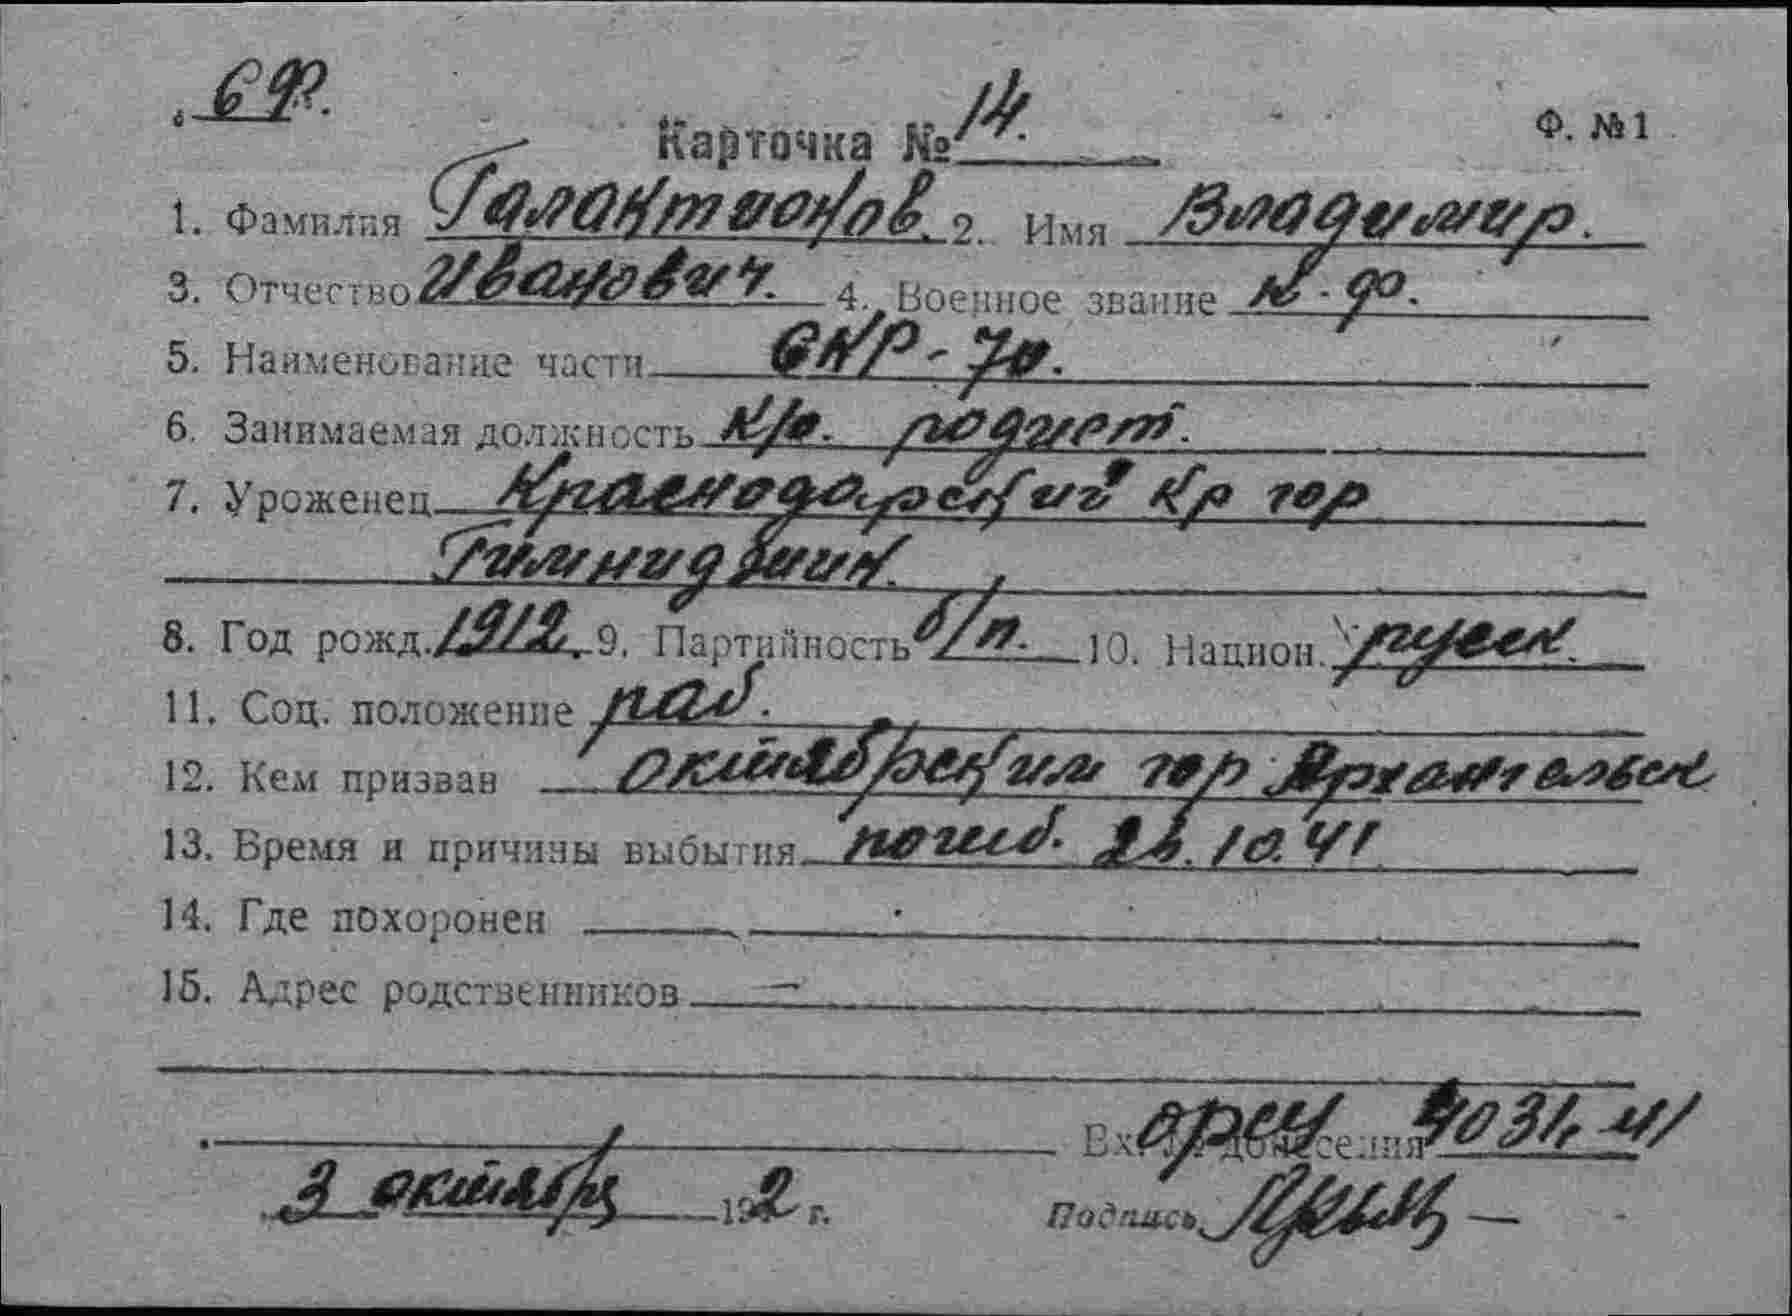 6 Ф.
Карточка № 14.
Ф. № 1
1. Фамилия Галактионов. 2. Имя Владимир.
3. Отчество Иванович. 4. Военное звание к-ф.
5. Наименование части СКР-70.
6. Занимаемая должность К/о. родист.
7. Уроженец Краснодарский Кр гор
Гилинидджик.
8. Год рожд. 1912. 9. Партийность б/п. 10. Национ. русск.
11. Соц. положение раб.
12. Кем призван октябрьским гор Архангельск
13. Время и причины выбытия погиб. 10.41
14. Где похоронен
15. Адрес родственников —
Вх. донесения 4031, 41
3 октября 192 г.
Подпись